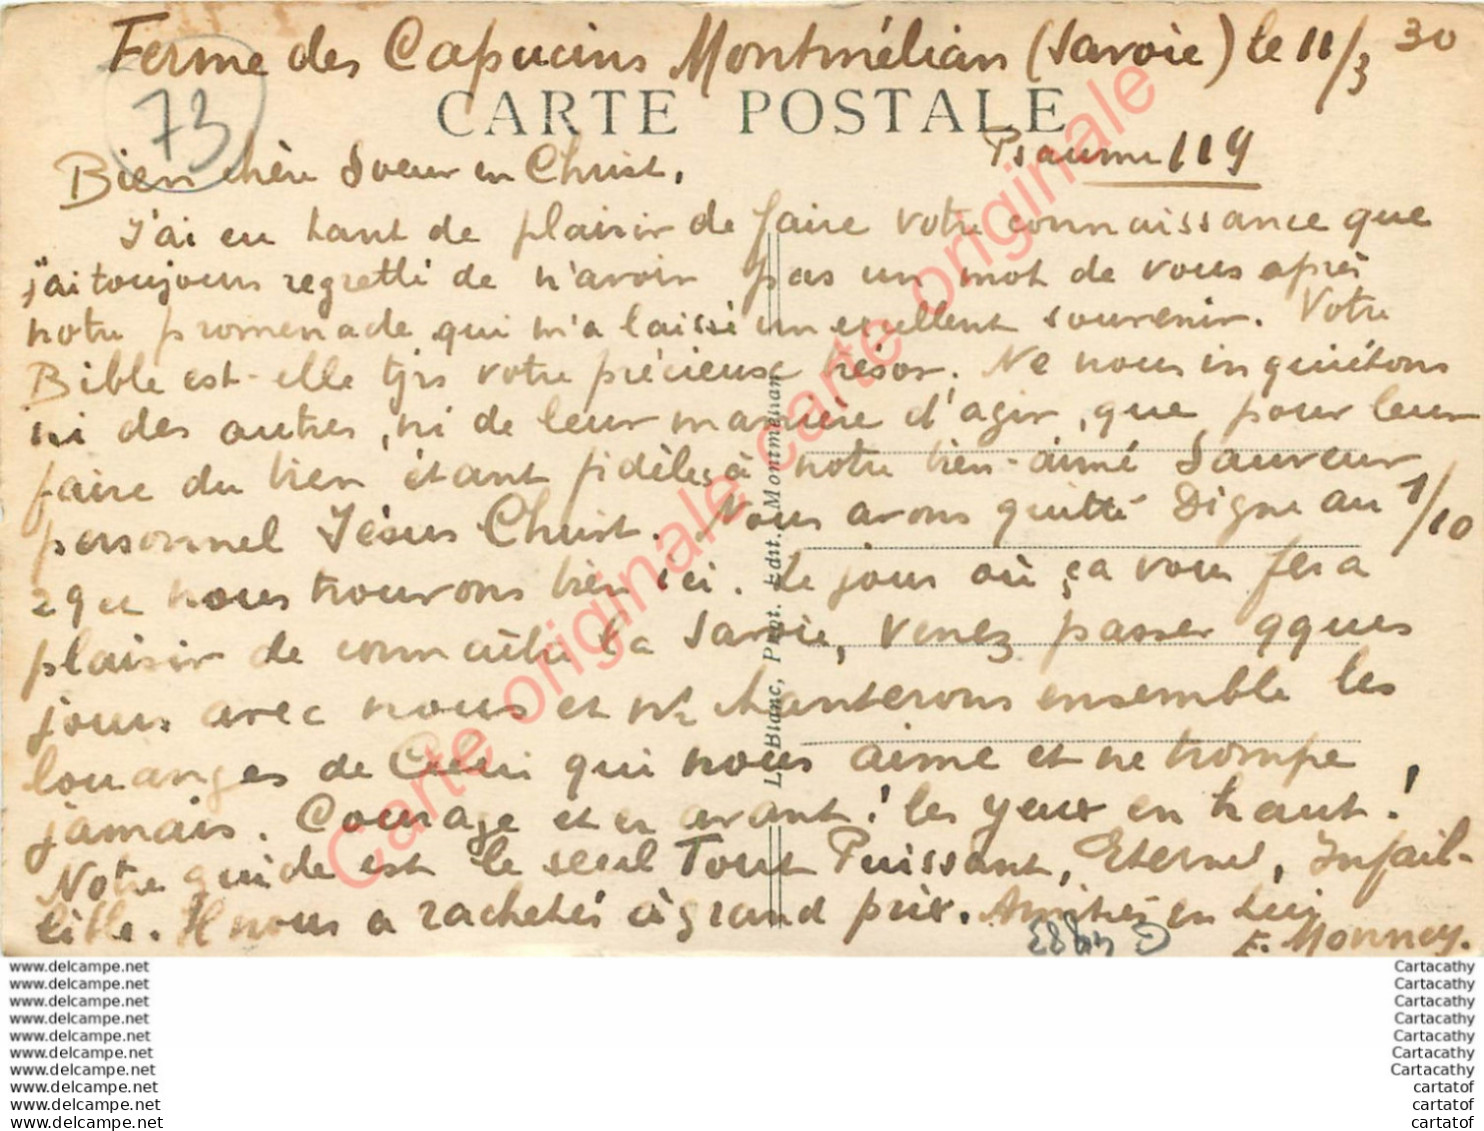 Ferme des Capucins Montmélian (Savoie) le 11/3 30
73
CARTE POSTALE
Psaume 119
Bien chère Soeur en Christ,
J'ai eu tant de plaisir de faire votre connaissance que
j'ai toujours regretté de n'avoir pas un mot de vous après
notre promenade qui m'a laissé un excellent souvenir. Votre
Bible est-elle tjrs votre précieuse trésor. Ne nous inquiétons
ni des autres, ni de leur manière d'agir, que pour leur
faire du bien étant fidèles à notre bien-aimé Sauveur
personnel Jésus Christ. Nous avons quitté Digne au 1/10
29 et nous trouvons bien ici. Le jour où ça vous fera
plaisir de connaître la Savoie, venez passer qques
jours avec nous et ns chanterons ensemble les
louanges de Celui qui nous aime et ne trompe
jamais. Courage et en avant! les yeux en haut!
Notre guide est le seul Tout Puissant, Eternel, Infail-
lible. Il nous a rachetés à grand prix. Amitiés en Lui
E. Monney.
L. Blanc, Ppt. Edit. Montmélian
Carte originale carte originale carte originale
www.delcampe.net
www.delcampe.net
www.delcampe.net
www.delcampe.net
www.delcampe.net
www.delcampe.net
www.delcampe.net
www.delcampe.net
www.delcampe.net
www.delcampe.net
Cartacathy
Cartacathy
Cartacathy
Cartacathy
Cartacathy
Cartacathy
Cartacathy
cartatof
cartatof
cartatof